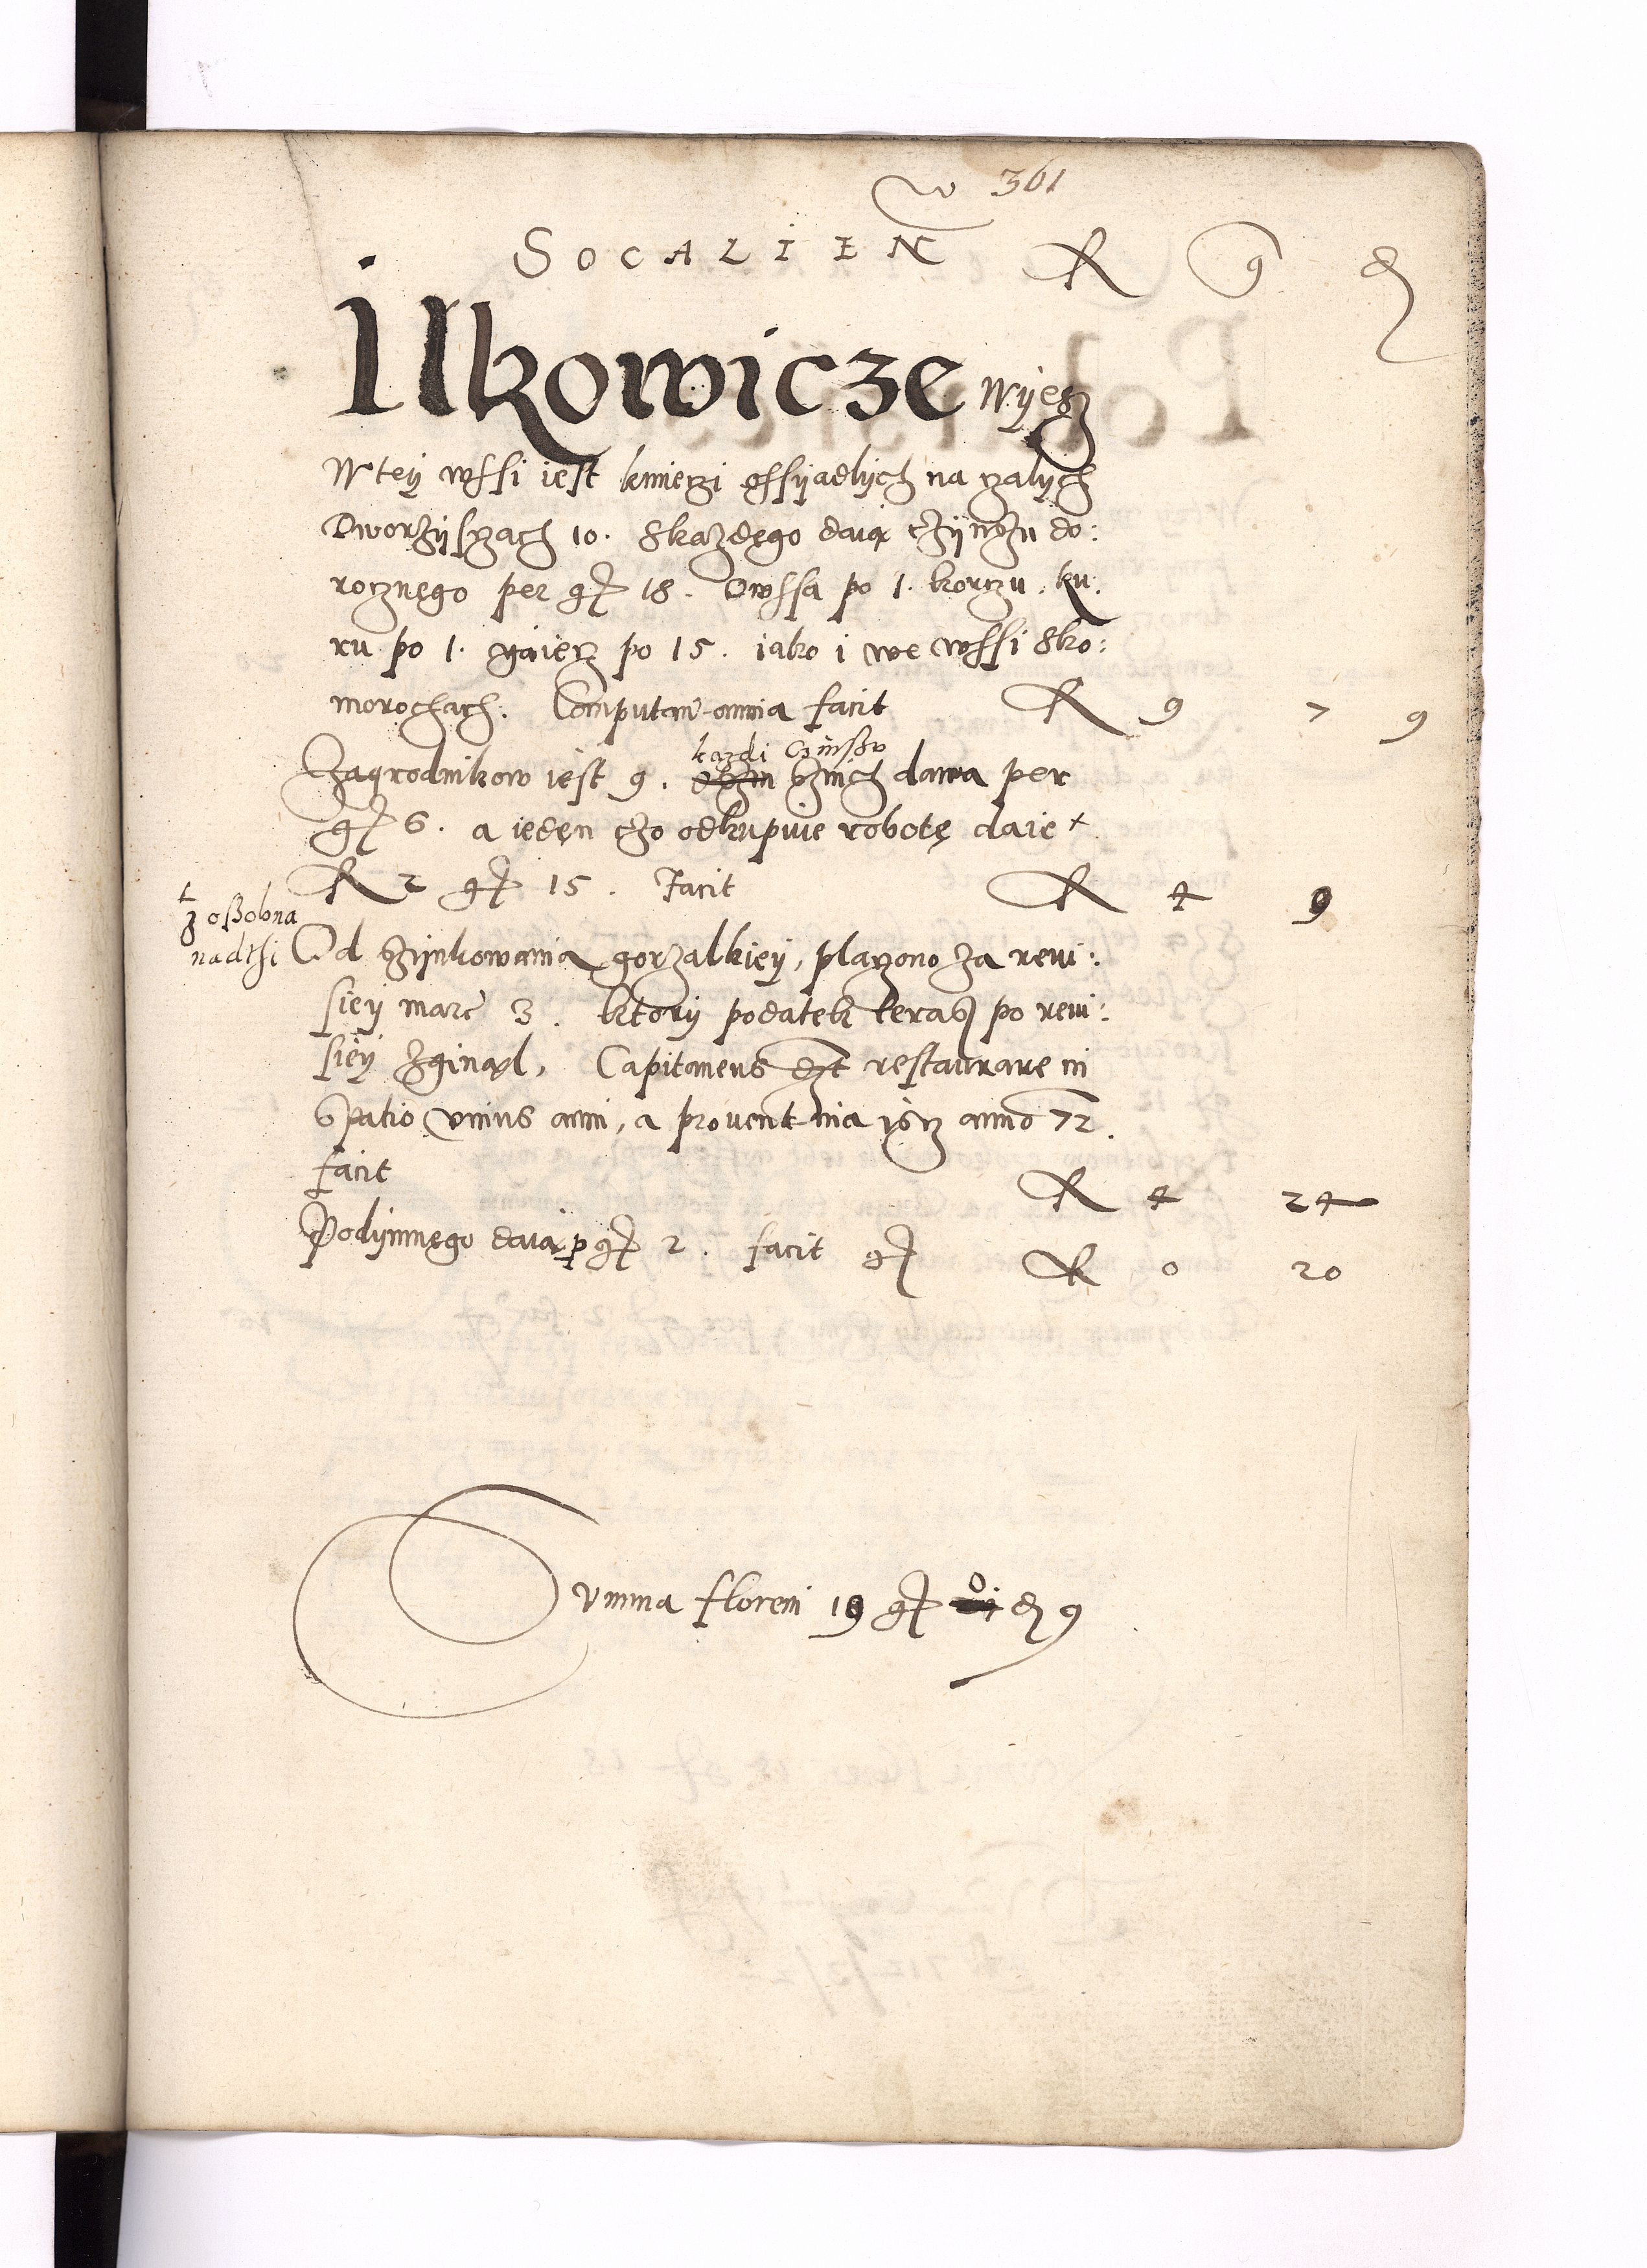 361
SOCALIEN fl gr d
Ilkowicze wyesz
W tey wssi iest kmieczi ossyadlych na czalych
Dworzysczach 10. Skazdego daią czynszu do:
rocznego per gr 18. Owssa po 1. korczu, ku:
ru po 1. yaiecz po 15. iako i we wssi Sko:
morochach. Computan omnia facit fl 9 7 9
kazdi Czinssu
Zagrodnikow iest 9. znich dawa per
gr 6. a ieden czo odkupuie robotę daie +
fl 2 gr 15. Facit fl 4 9
+ z ossobna
nadtsi
Od szynkowania gorzalkiey, placzono za revi:
siey marc 3. ktory podatek teras po revi:
siey zginąl, Capitaneus restaurare in
spatio unius anni, a provent ma iscz anno 72.
facit fl 4 24
Podymnego daią p gr 2. facit gr fl 0 20
Summa floreni 19 gr 0 d 9